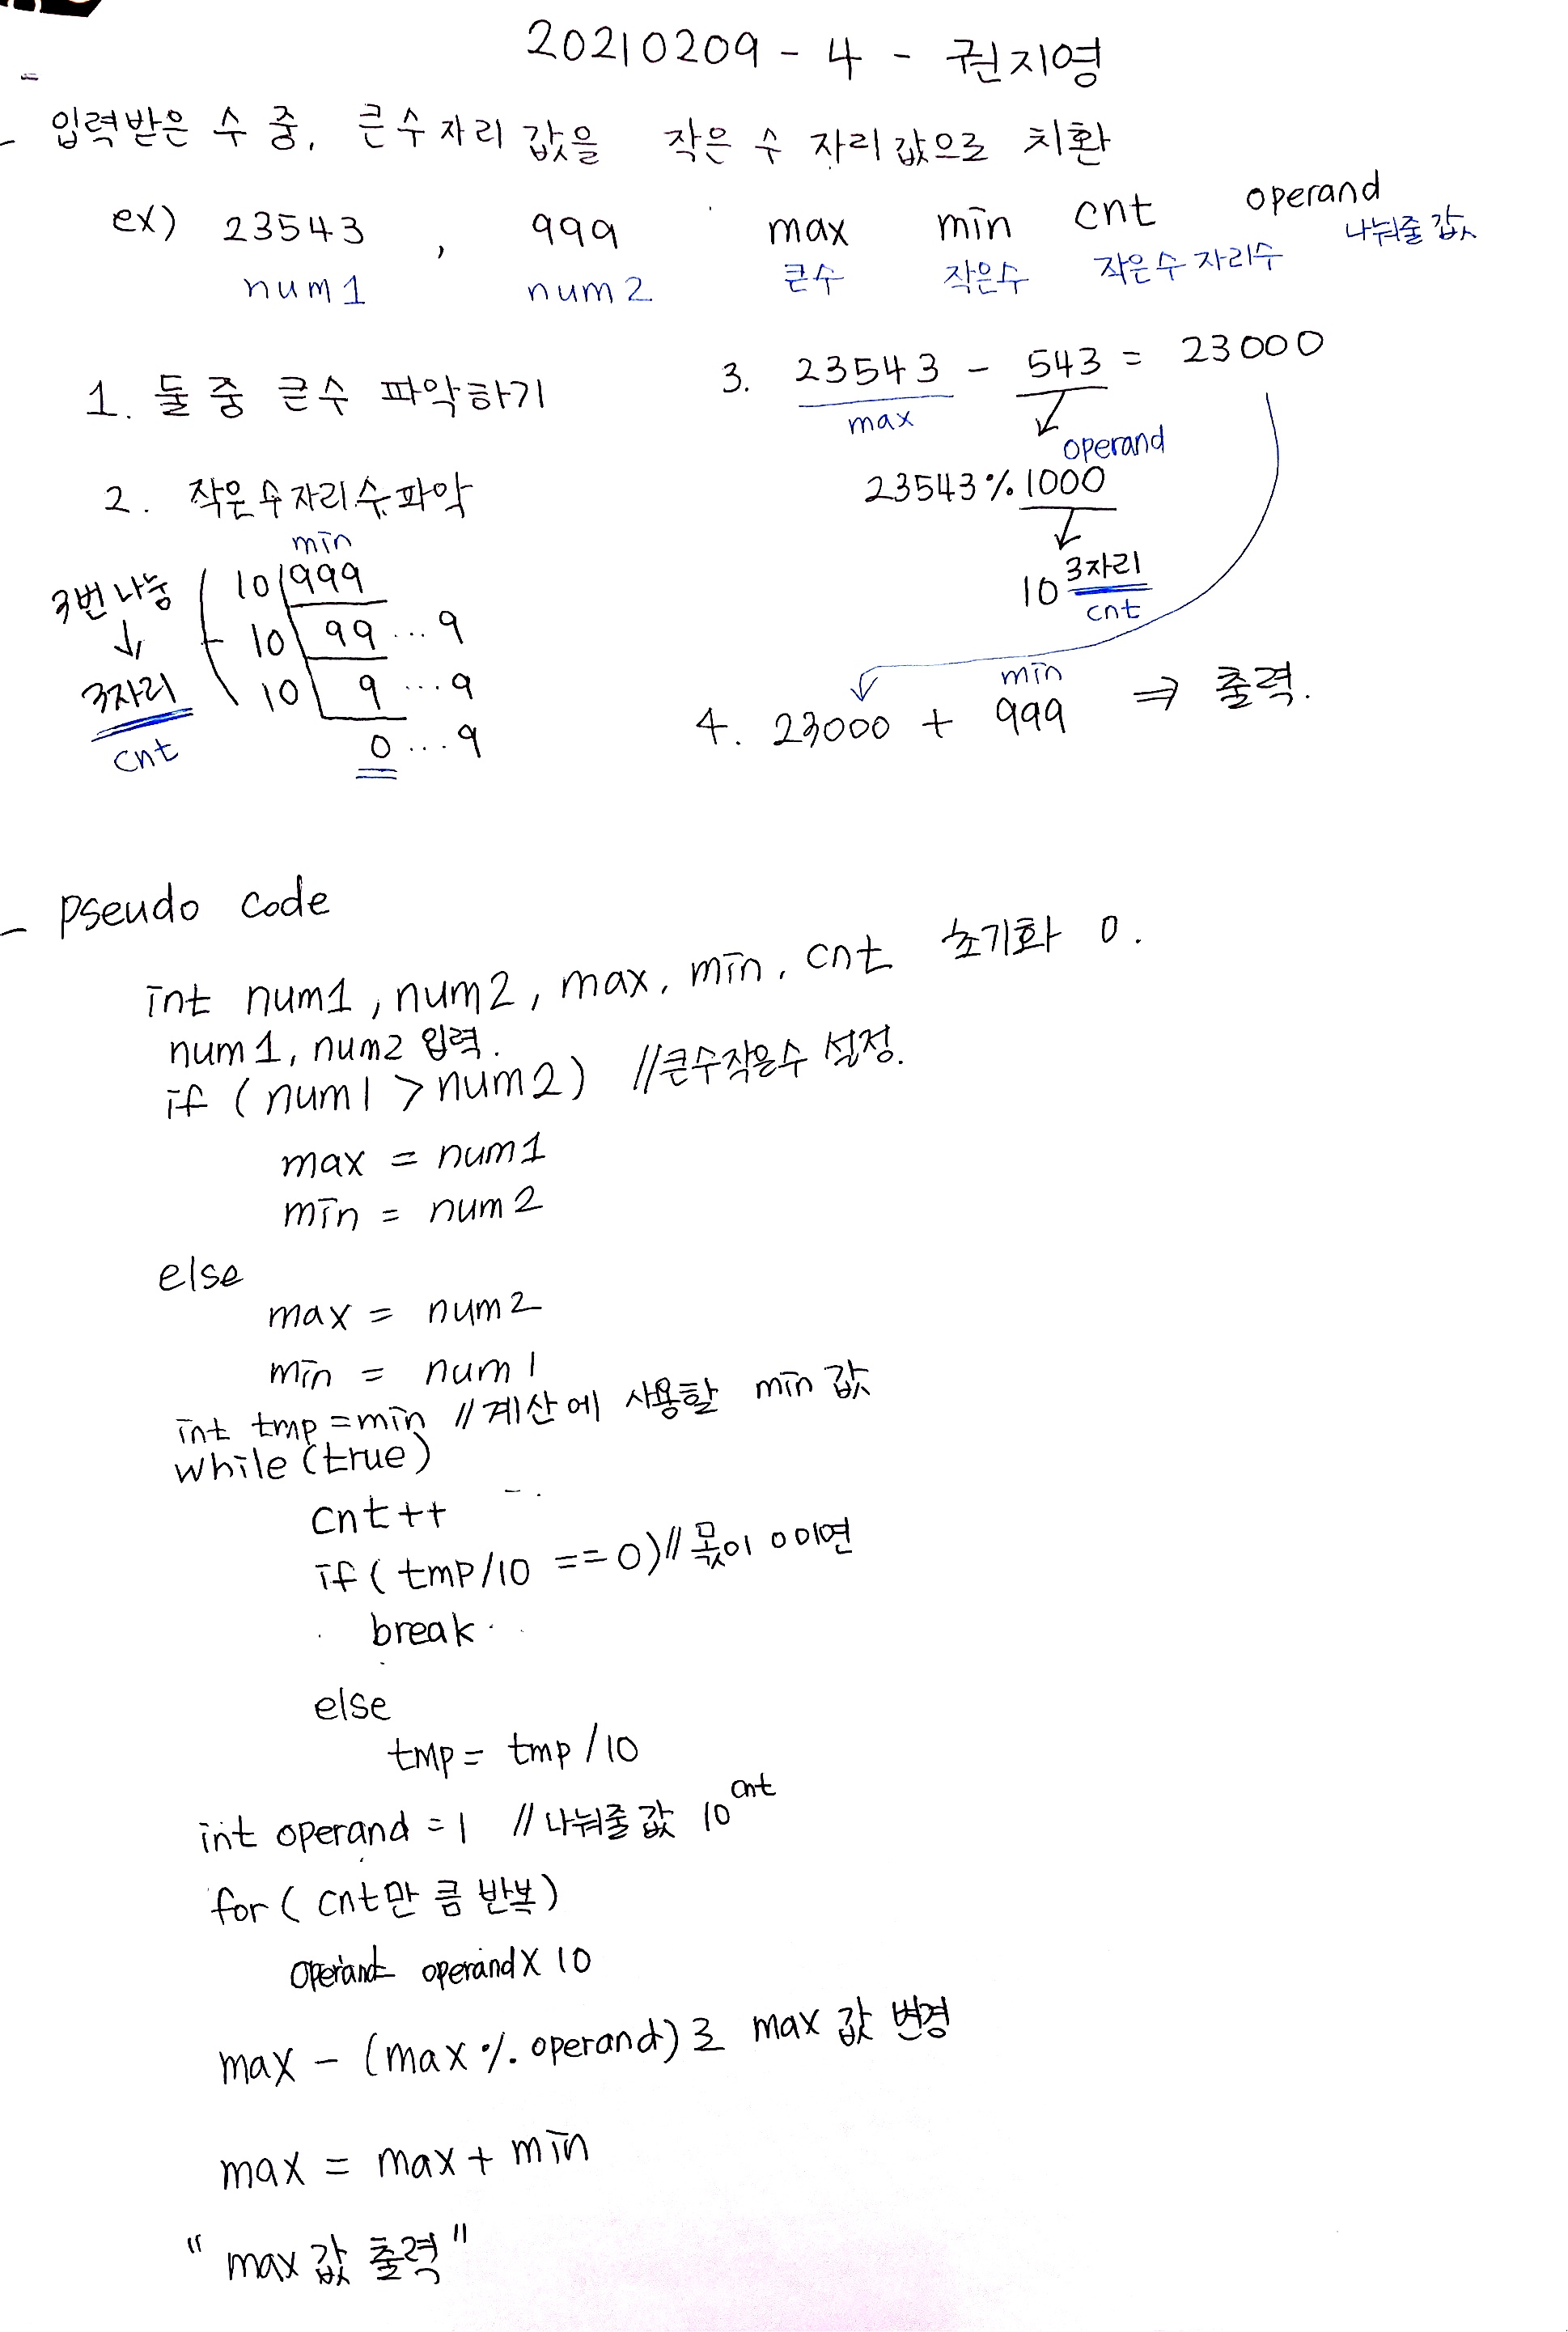 20210209 - 4 - 권지영
- 입력받은 수 중, 큰수자리 값을 작은 수 자리값으로 치환
ex) 23543 , 999
num1 num2
max min cnt operand
큰수 작은수 작은수 자리수 나눠줄 값
1. 둘 중 큰수 파악하기
2. 작은수자리수파악
min
10 999
10 99 ... 9
10 9 ... 9
0 ... 9
3번 나눔
↓
3자리
cnt
3. 23543 - 543 = 23000
max
operand
23543 % 1000
10 3자리
cnt
min
4. 23000 + 999 ⇒ 출력.
- pseudo code
int num1, num2, max, min, cnt 초기화 0.
num1, num2 입력.
if (num1 > num2) //큰수작은수 설정.
max = num1
min = num2
else
max = num2
min = num1
int tmp = min //계산에 사용할 min 값
while(true)
cnt++
if( tmp/10 == 0) // 몫이 0이면
break
else
tmp = tmp /10
int operand = 1 // 나눠줄 값 10^cnt
for ( cnt만큼 반복)
operand= operand X 10
max - (max % operand)로 max 값 변경
max = max + min
" max 값 출력 "